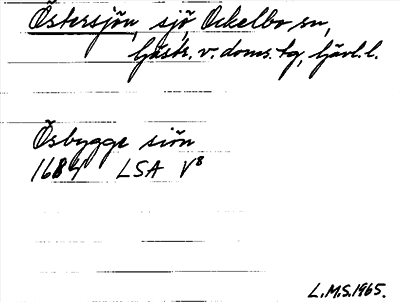 Östersjön, sjö, Ockelbo sn,
Gästr. v. doms. tg, Gävl. l.
Ösbygge siön
1684 LSA V8
L.M.S. 1965.